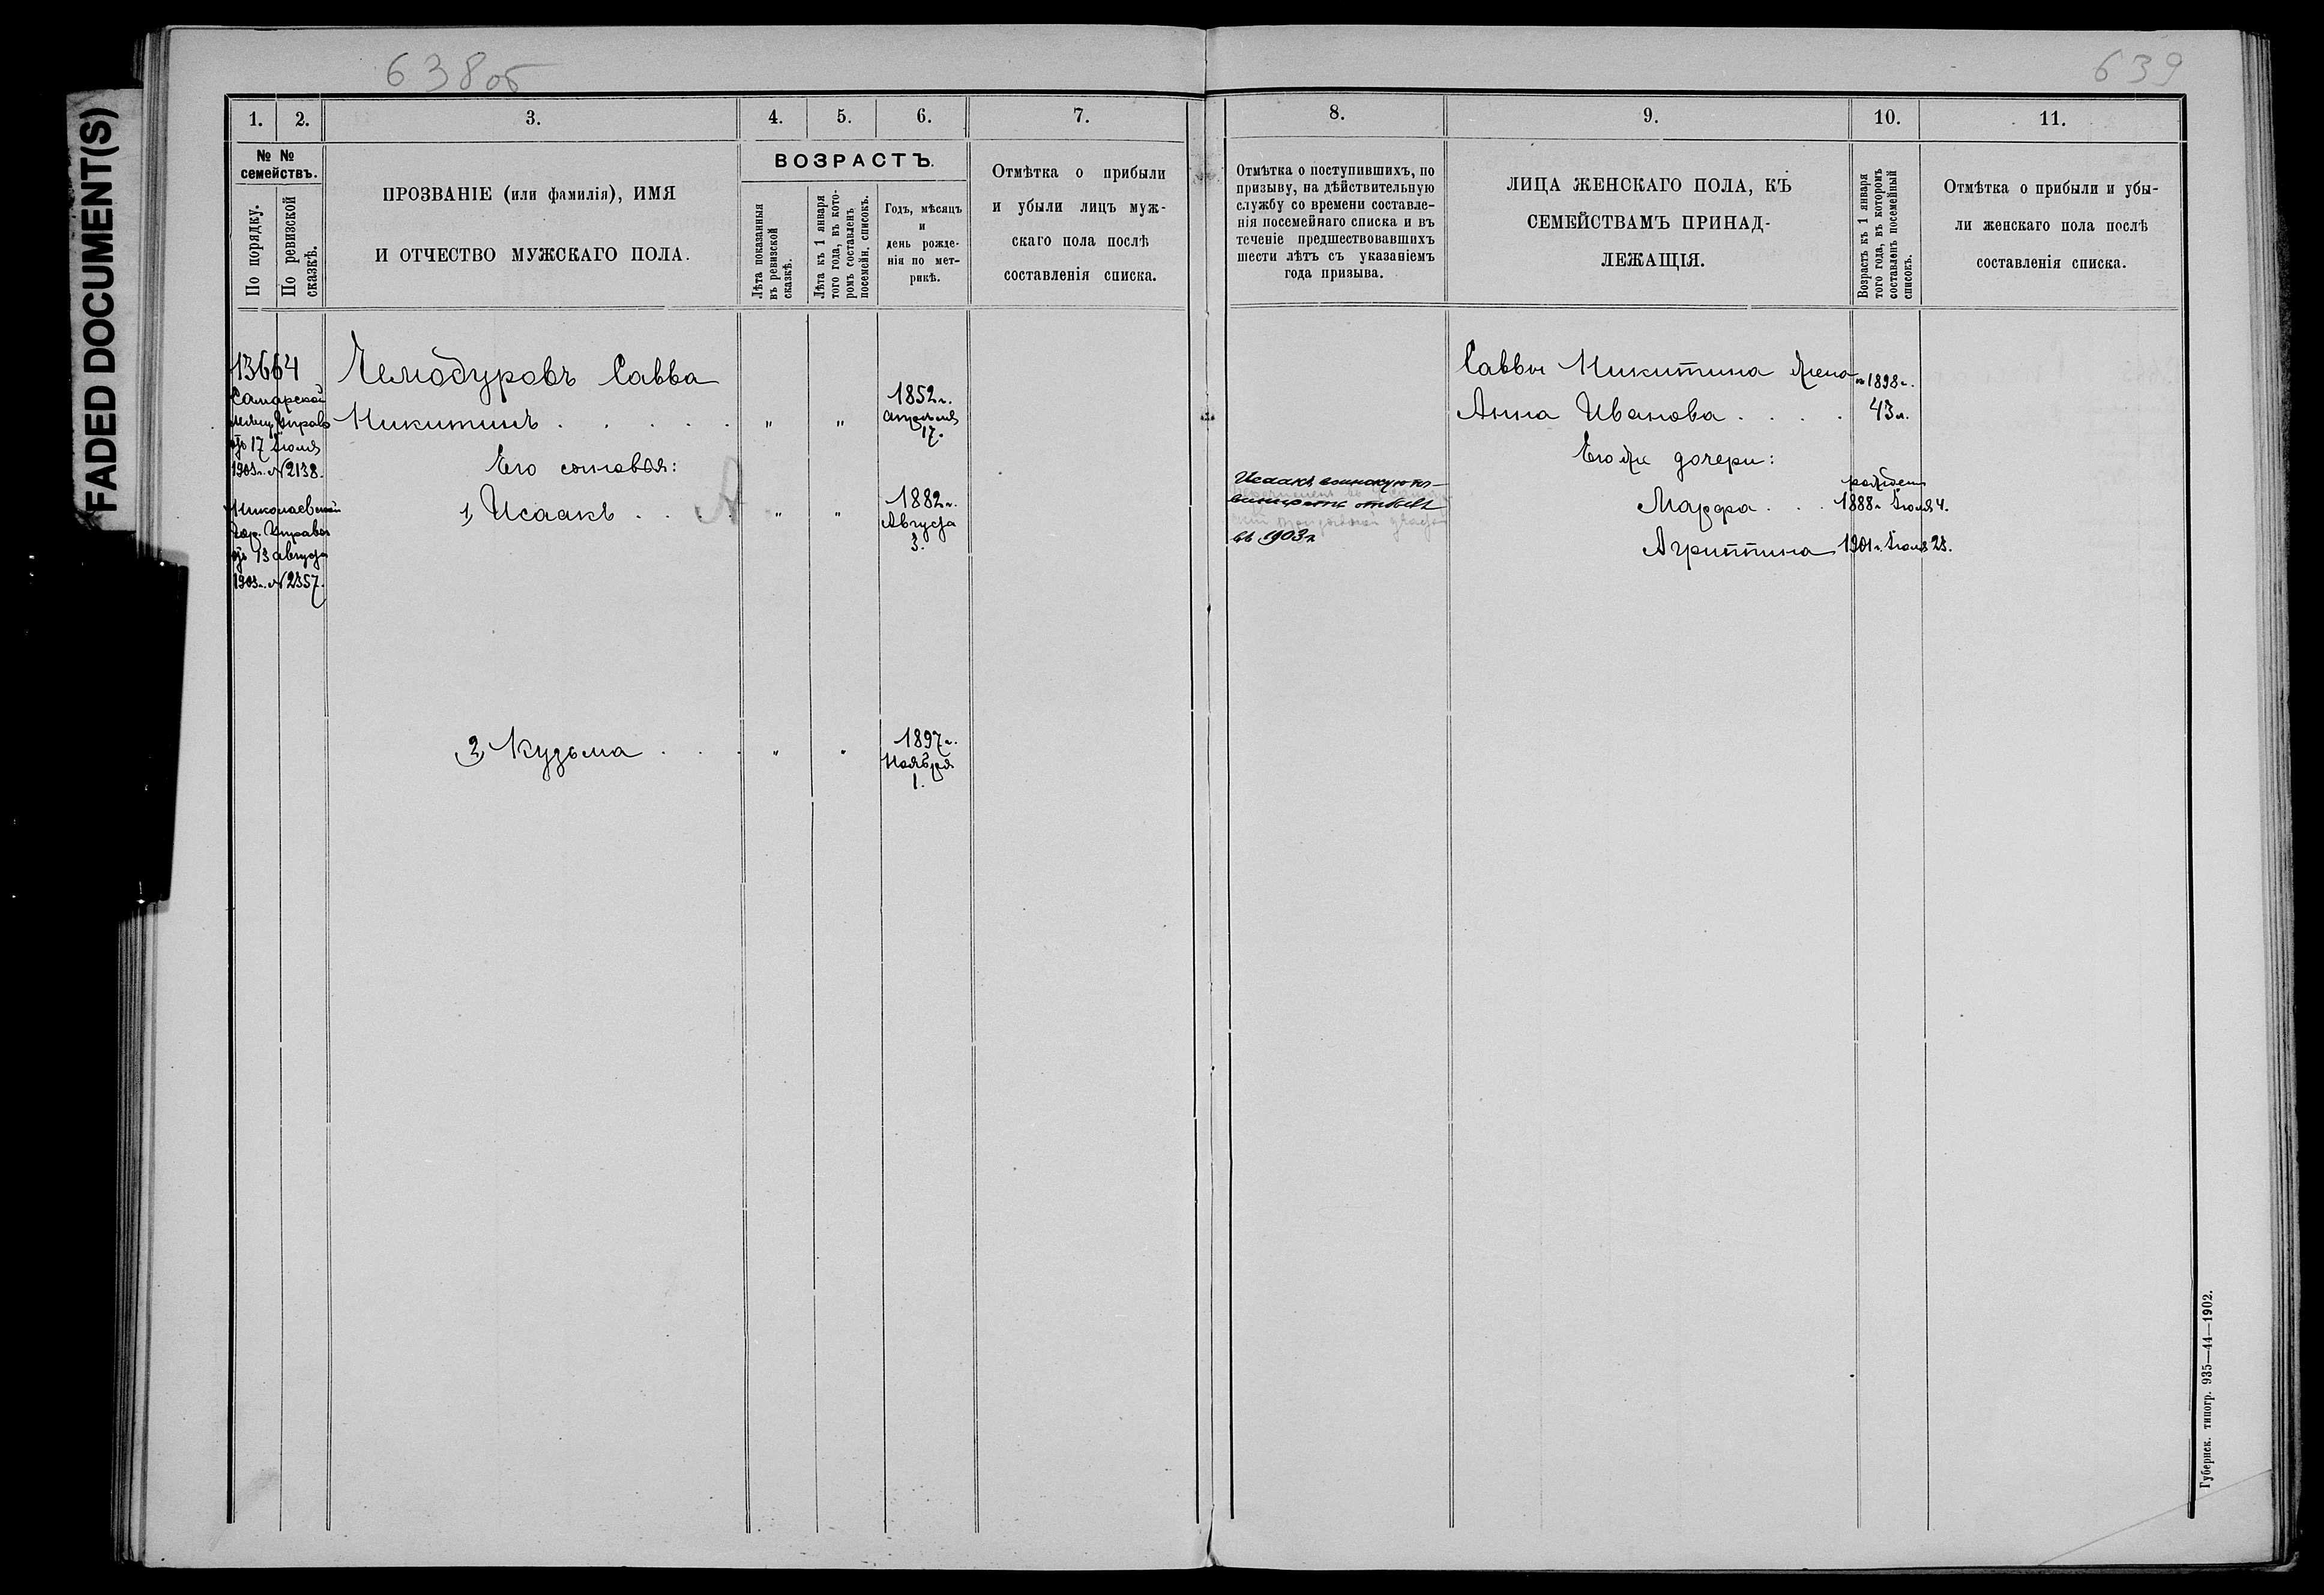 FADED DOCUMENT(S)
638об
1. 2. 3. 4. 5. 6. 7.
№ №
семействъ.
По порядку.
По ревизской
сказкѣ.
ПРОЗВАНІЕ (или фамилія), ИМЯ
И ОТЧЕСТВО МУЖСКАГО ПОЛА.
ВОЗРАСТЪ.
Лѣта показанныя
въ ревизской
сказкѣ.
Лѣта къ 1 января
того года, въ кото-
ромъ составленъ
посемейн. списокъ.
Годъ, мѣсяцъ
и
день рожде-
нія по мет-
рикѣ.
Отмѣтка о прибыли
и убыли лицъ муж-
скаго пола послѣ
составленія списка.
13664
Самарской
Мѣщ. Управы
отъ 17 Іюля
1903г. № 2138.
Николаевской
Гор. Управы
отъ 13 августа
1903г. № 2357.
Чемодуровъ Савва
Никитинъ . . . . . " " 1852г.
апрѣля
17.
Его сыновья:
1, Исаакъ . . . " " 1882г.
Августа
3.
2, Кузьма . . . " " 1897г.
Ноября
1.
639
8. 9. 10. 11.
Отмѣтка о поступившихъ, по
призыву, на дѣйствительную
службу со времени составле-
нія посемейнаго списка и въ
теченіе предшествовавшихъ
шести лѣтъ съ указаніемъ
года призыва.
ЛИЦА ЖЕНСКАГО ПОЛА, КЪ
СЕМЕЙСТВАМЪ ПРИНАД-
ЛЕЖАЩІЯ.
Возрастъ къ 1 января
того года, въ которомъ
составленъ посемейный
списокъ.
Отмѣтка о прибыли и убы-
ли женскаго пола послѣ
составленія списка.
Исаакъ воинскую по-
винность отбылъ
въ 1903г
Саввы Никитина жена 1898г.
Анна Иванова . . . . 43л.
Его же дочери:
Марфа . . . 1888г. Іюля 4.
Агриппина 1901г. Іюня 23.
Губернск. типогр. 935—44—1902.